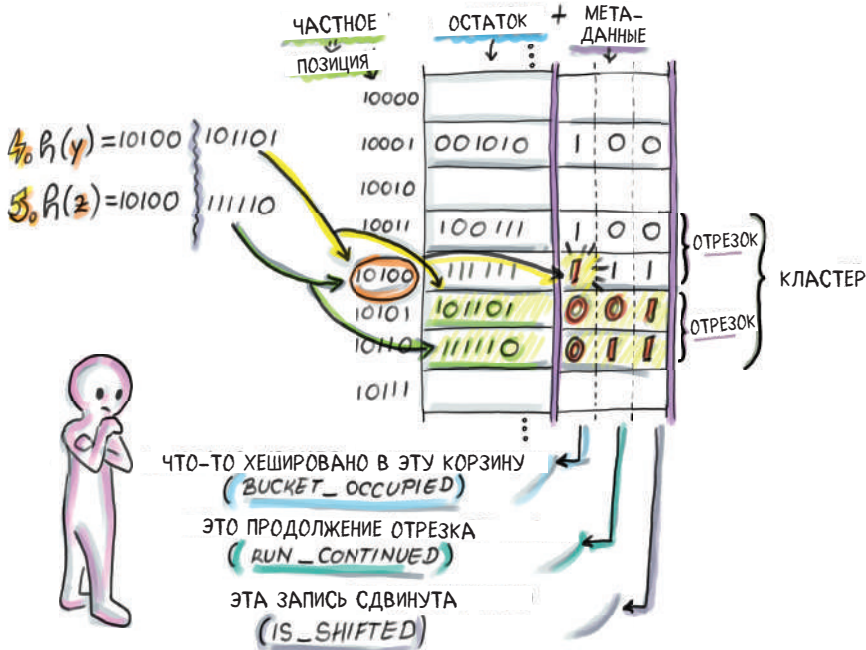 ЧАСТНОЕ
ПОЗИЦИЯ
ОСТАТОК
+
МЕТА-
ДАННЫЕ
4. h(y)=10100 101101
5. h(z)=10100 111110
10000
10001 001010 1 0 0
10010
10011 100111 1 0 0
10100 111111 1 1 1
10101 101101 0 0 1
10110 111110 0 1 1
10111
ОТРЕЗОК
ОТРЕЗОК
КЛАСТЕР
ЧТО-ТО ХЕШИРОВАНО В ЭТУ КОРЗИНУ
(BUCKET_OCCUPIED)
ЭТО ПРОДОЛЖЕНИЕ ОТРЕЗКА
(RUN_CONTINUED)
ЭТА ЗАПИСЬ СДВИНУТА
(IS_SHIFTED)